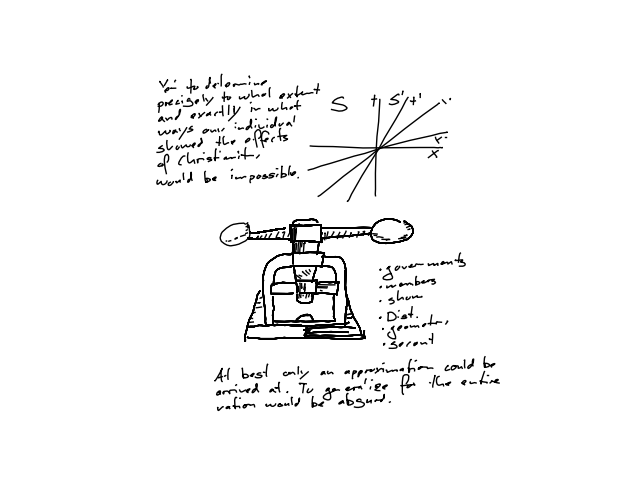 Yet to determine
precisely to what extent
and exactly in what
ways one individual
showed the effects
of Christianity
would be impossible.
S t S' t'
x'
x
• governments
• members
• show
• Dist.
• geometry
• second
At best only an approximation could be
arrived at. To generalize for the entire
nation would be absurd.